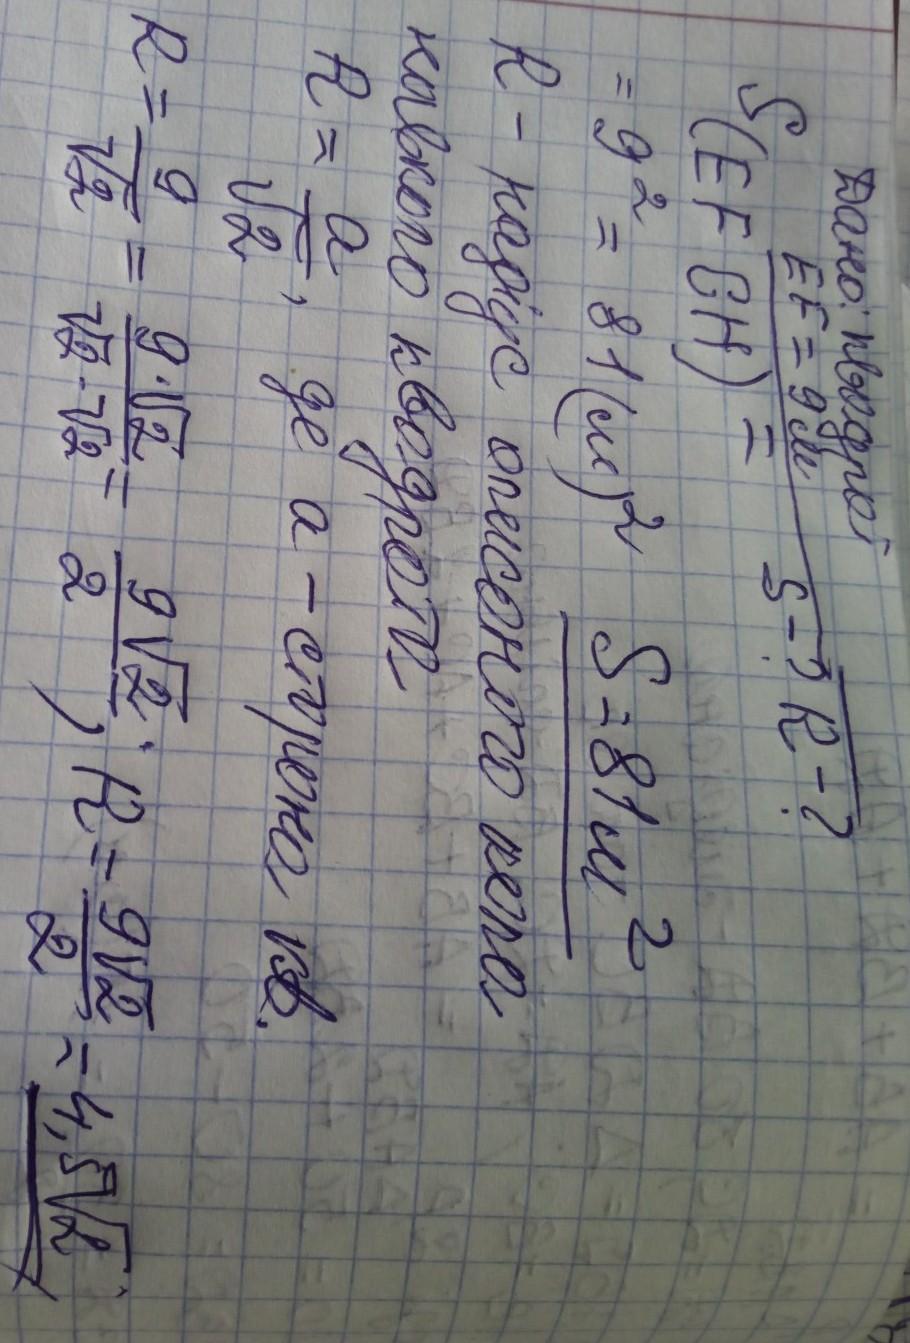 Дано: квадрат
EF = 9 см S-? R-?
S(EFGH) =
= 9² = 81 (см)² S = 81 см²
R - радіус описаного кола
навколо квадрата
R = a/√2, де a - сторона кв.
R = 9/√2 = 9·√2/√2·√2 = 9√2/2, R = 9√2/2 = 4,5√2